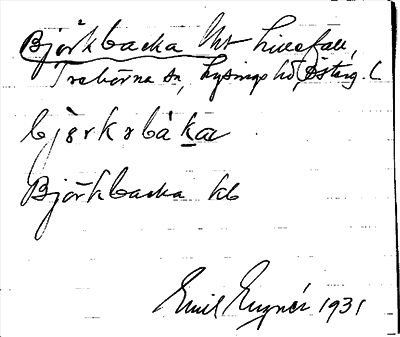 Björkbacka lht Lillefall,
Trehörna sn, Lysings hd, Österg. l
bjǝrkɤbàka
Björkbacka kb
Emil Eugnér 1931